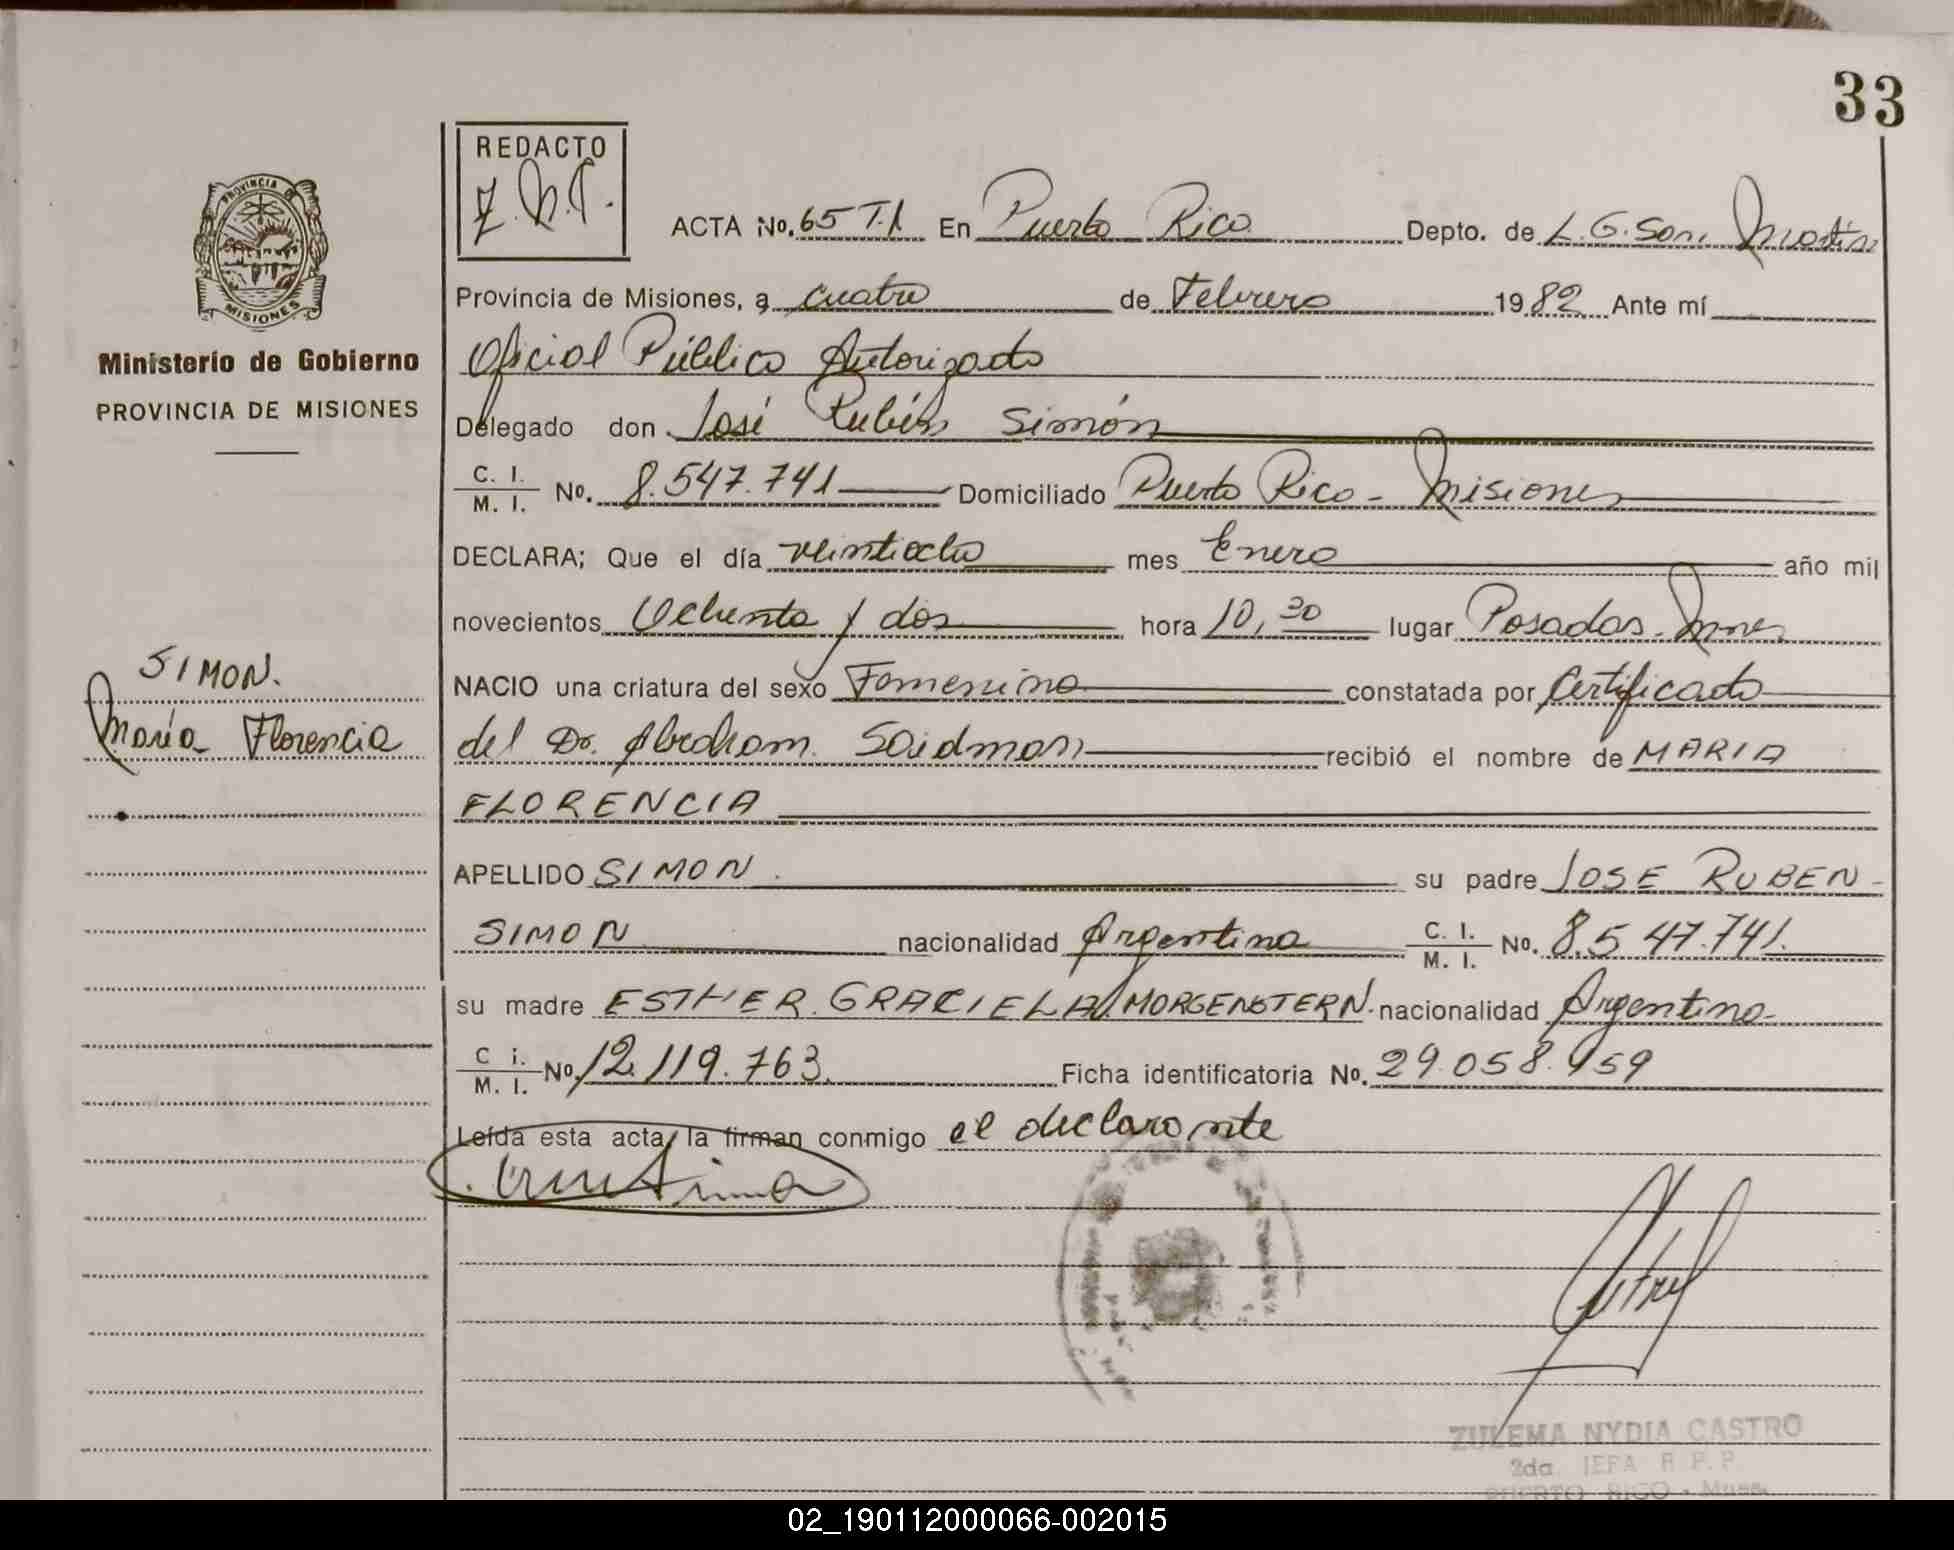 33
REDACTO
Z.N.C.
ACTA No. 65 T.1 En Puerto Rico Depto. de L.G.San Martín
Provincia de Misiones, a cuatro de Febrero 1982 Ante mí
Oficial Público Autorizado
Delegado don José Rubén Simón
C. I.
M. I. No. 8.547.741 Domiciliado Puerto Rico - Misiones
DECLARA; Que el día veintiocho mes Enero año mil
novecientos Ochenta y dos hora 10,30 lugar Posadas. Mnes
NACIO una criatura del sexo Femenino constatada por Certificado
del Dr. Abraham Saidman recibió el nombre de MARIA
FLORENCIA
APELLIDO SIMON. su padre JOSE RUBEN
SIMON nacionalidad Argentina C. I.
M. I. No. 8.547.741.
su madre ESTHER GRACIELA MORGENSTERN. nacionalidad Argentina
C i.
M. I. No. 12.119.763. Ficha identificatoria No. 29.058.959
Leída esta acta, la firman conmigo el declarante
PROVINCIA DE
MISIONES
Ministerio de Gobierno
PROVINCIA DE MISIONES
SIMON.
María Florencia
ZULEMA NYDIA CASTRO
2da JEFA R.P.P.
PUERTO RICO - Mnes.
02_190112000066-002015